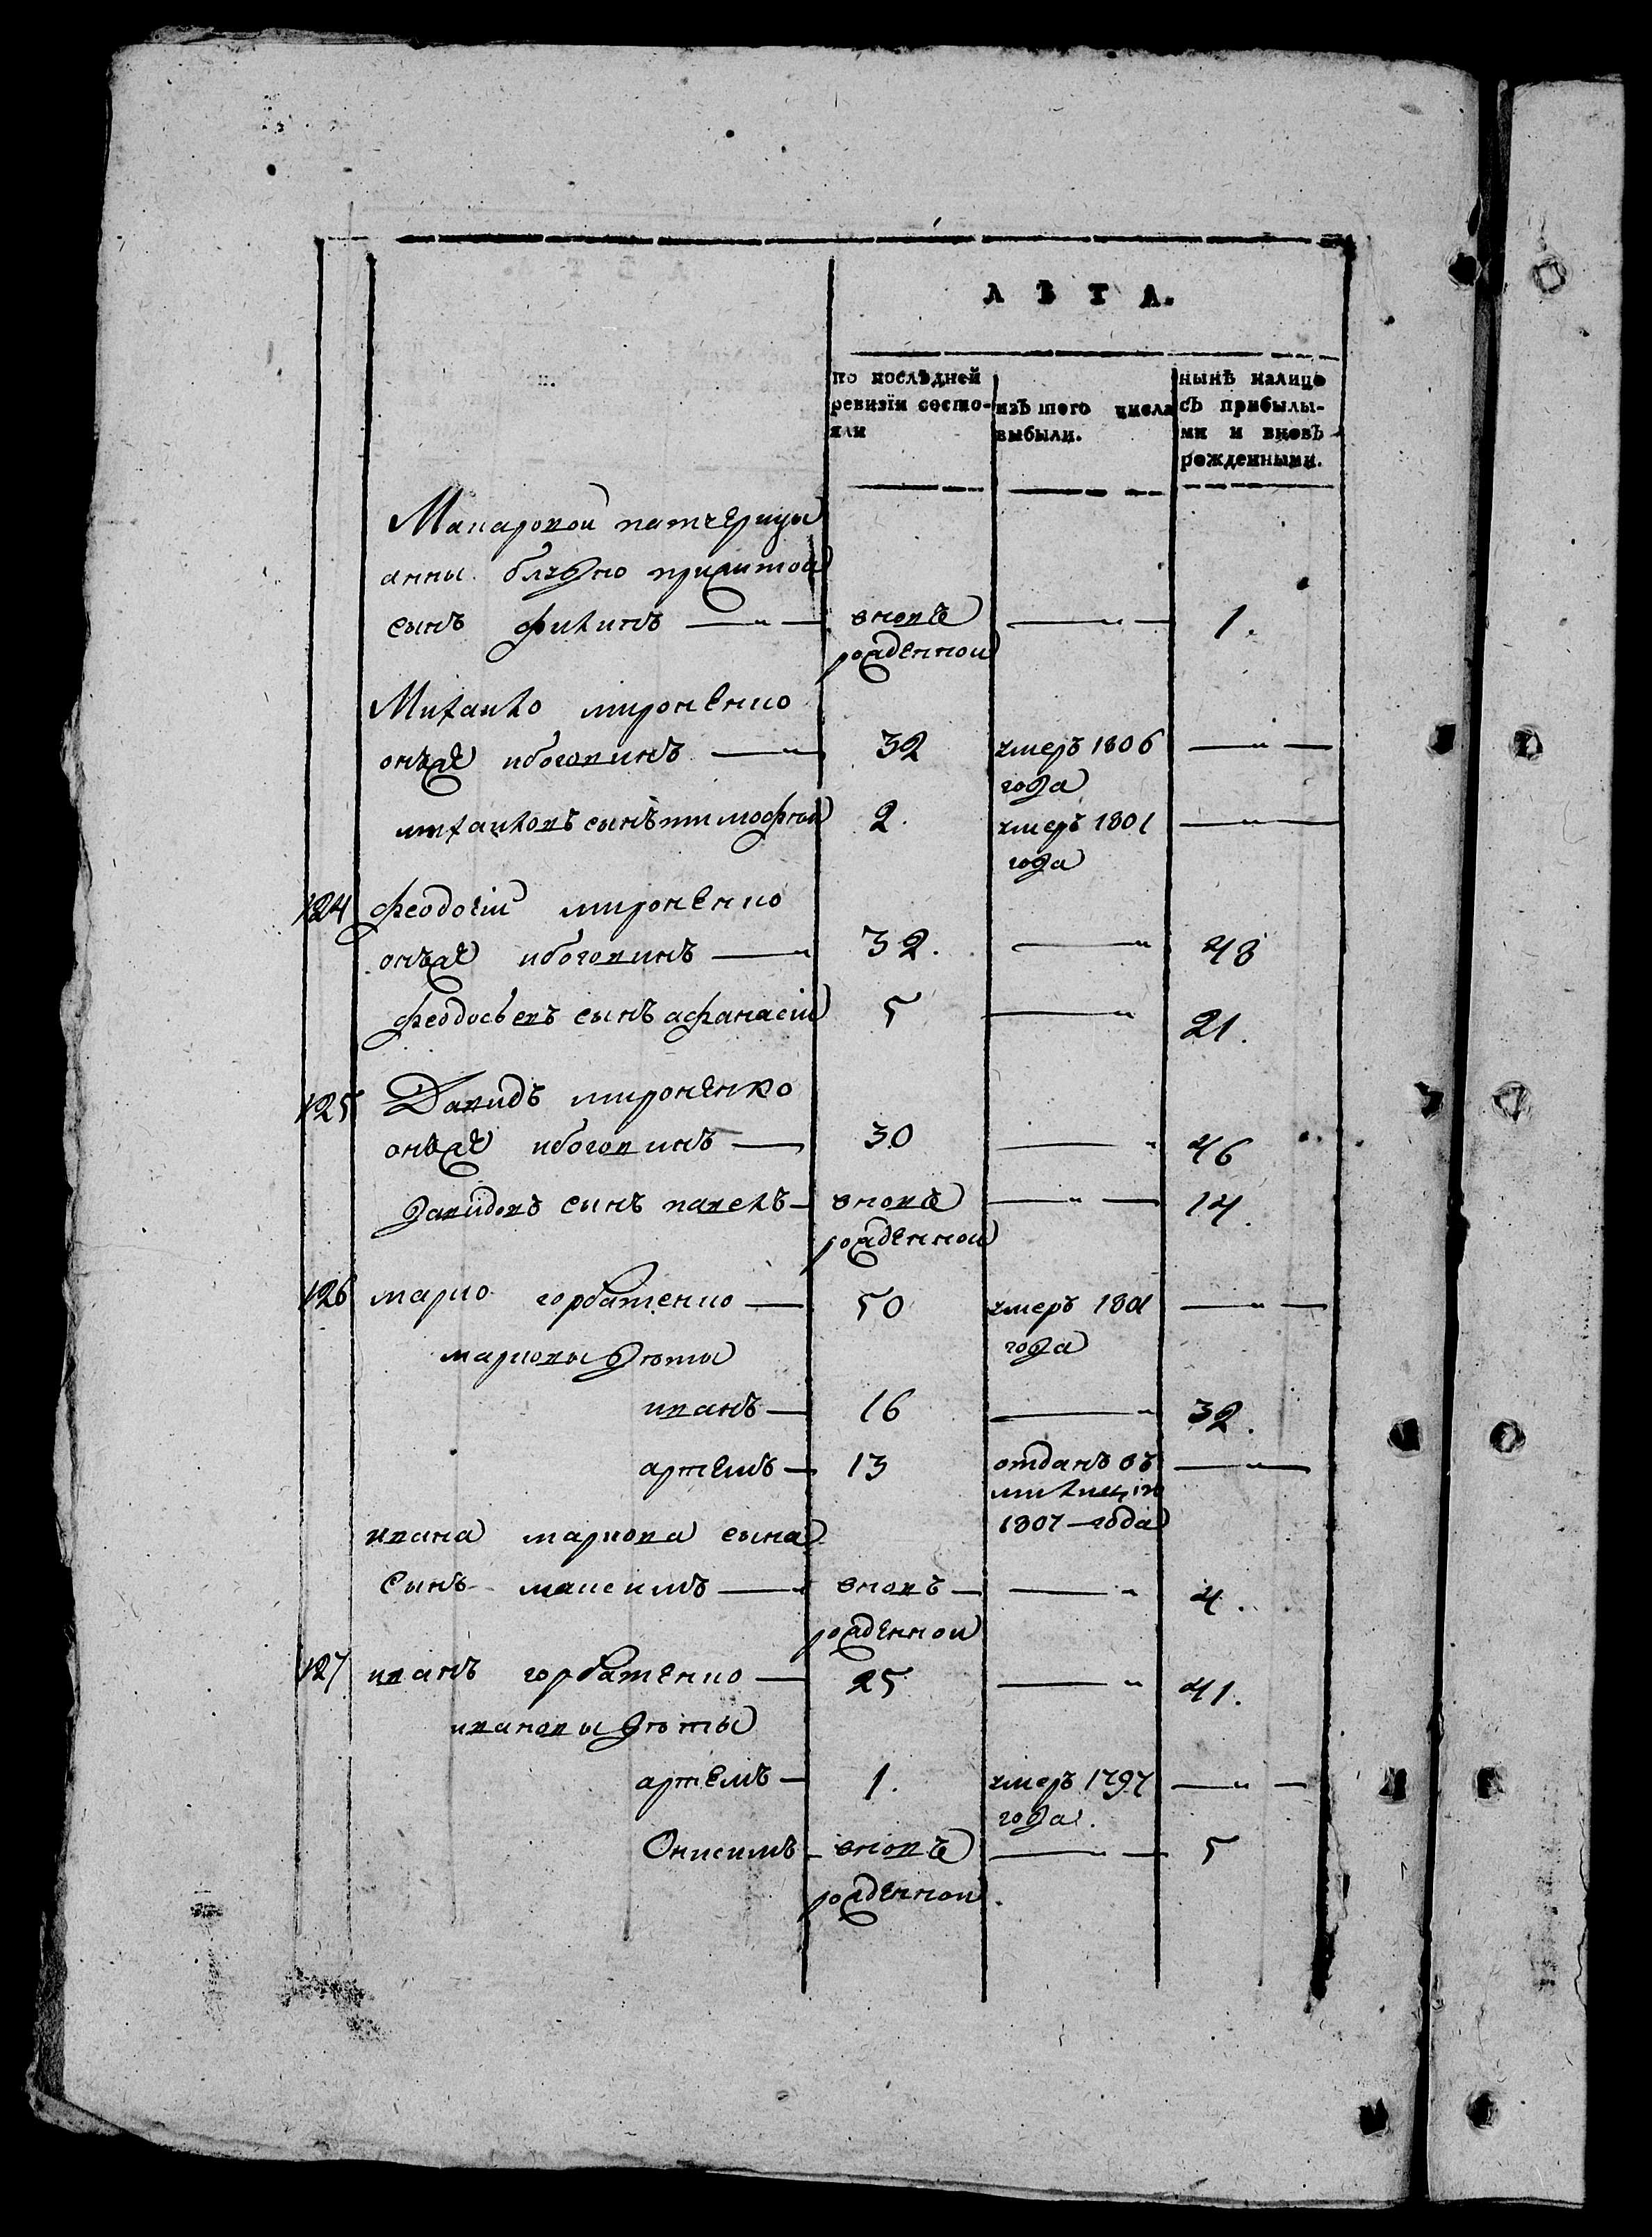 ЛѢТА.
по послѣдней ревизіи состояли
изъ того числа выбыли.
нынѣ налицо съ прибылыми и вновь рожденными.
Макаровой патчерицы
анны блудно прижитой
сынъ филипъ — вновѣ — 1.
рожденной
Михайло мироненко
онже кбоговинъ — 32 умеръ 1806 —
года
михайловъ сынъ тимофѣй 2. умеръ 1801 —
года
124 феодосій мироненко
онже кбоговинъ — 32. — 48
феодосьевъ сынъ афанасій 5 — 21.
125 Давидъ мироненко
онже кбоговинъ — 30 — 46
давидовъ сынъ павелъ — вновѣ — 14.
рожденной
126 марко горбатенко — 50 умеръ 1801 —
года
марковы дѣти
иванъ — 16 — 32.
артемъ — 13 отданъ въ —
милицію
1807 года
ивана маркова сына
сынъ максимъ — вновъ — 4.
рожденной
127 иванъ горбатенко — 25 — 41.
ивановы дѣты
артемъ — 1. умеръ 1797 —
года.
Онисимъ — вновѣ — 5
рожденной